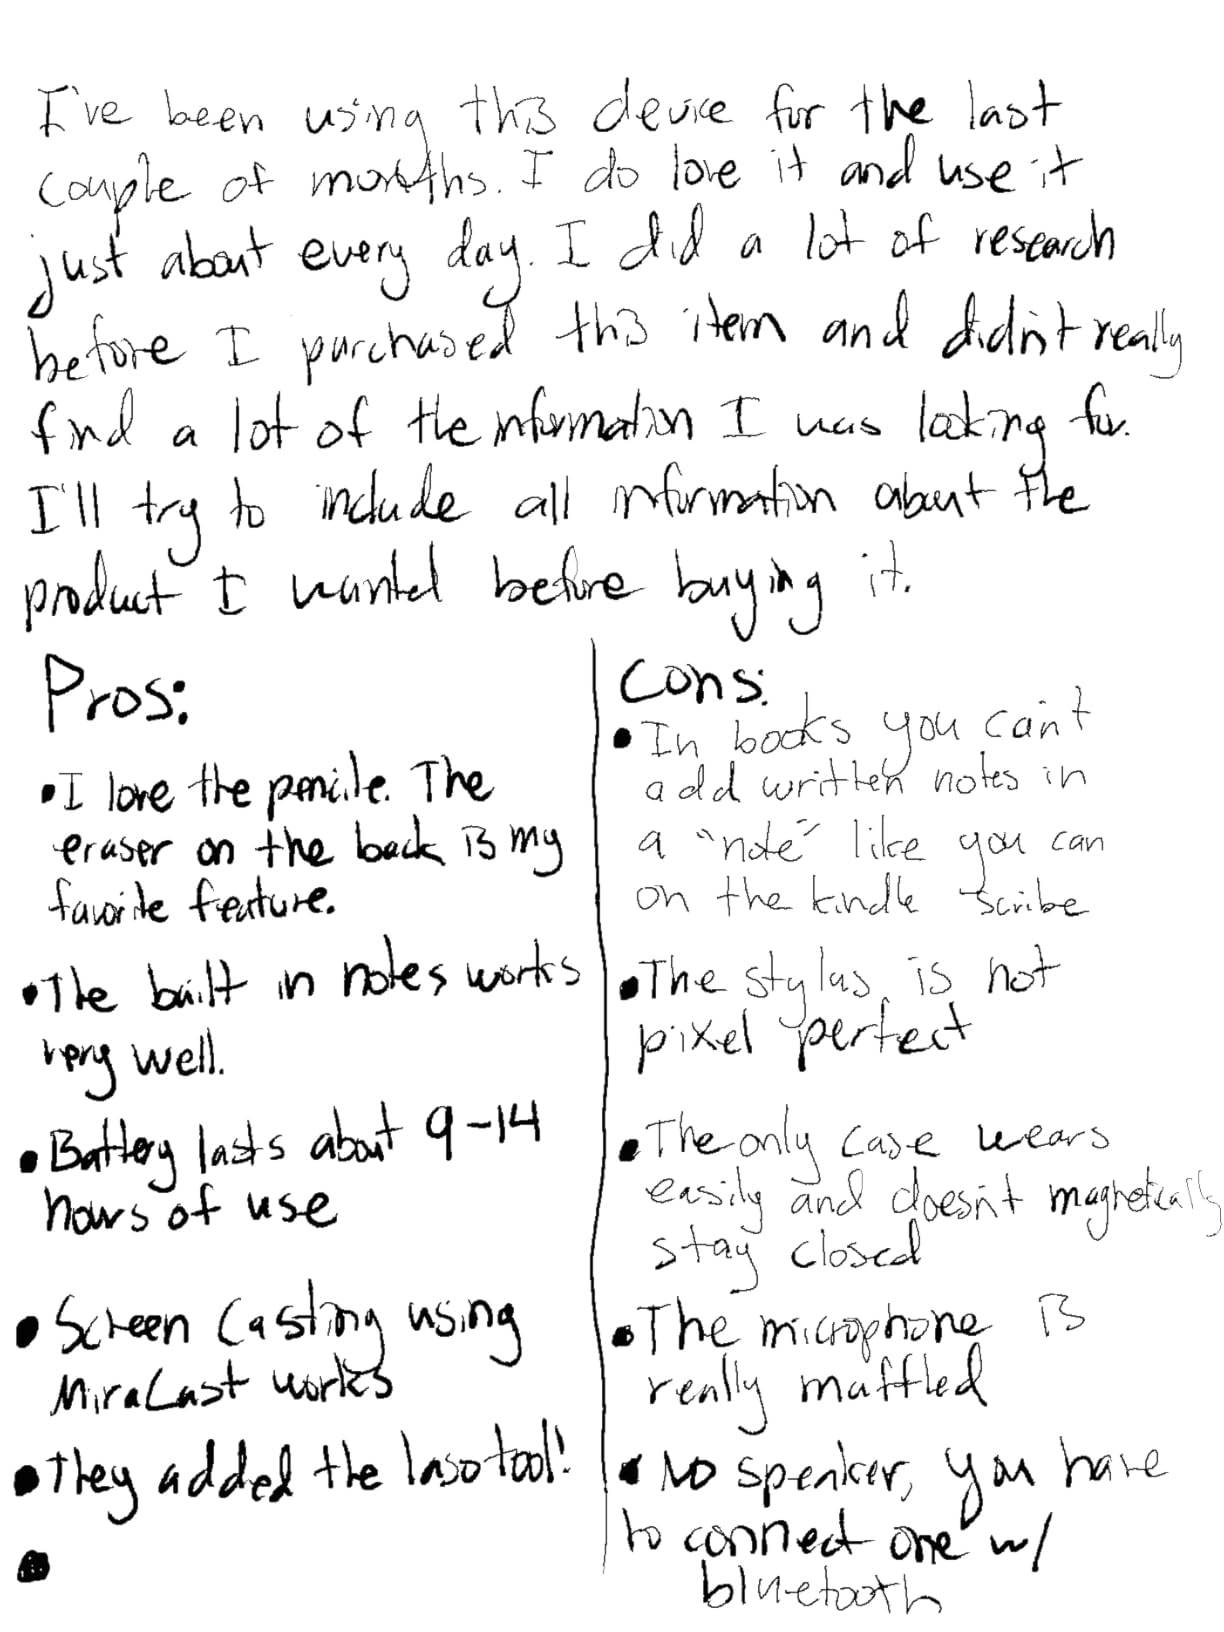 I've been using this device for the last
couple of months. I do love it and use it
just about every day. I did a lot of research
before I purchased this item and didn't really
find a lot of the information I was looking for.
I'll try to include all information about the
product I wanted before buying it.
Pros:
• I love the pencile. The
eraser on the back is my
favorite feature.
• The built in notes works
very well.
• Battery lasts about 9-14
hours of use
• Screen Casting using
MiraCast works
• They added the laso tool!
•
Cons:
• In books you can't
add written notes in
a "note" like you can
on the kindle scribe
• The stylus is not
pixel perfect
• The only case wears
easily and doesn't magnetically
stay closed
• The microphone is
really muffled
• No speaker, you have
to connect one w/
bluetooth